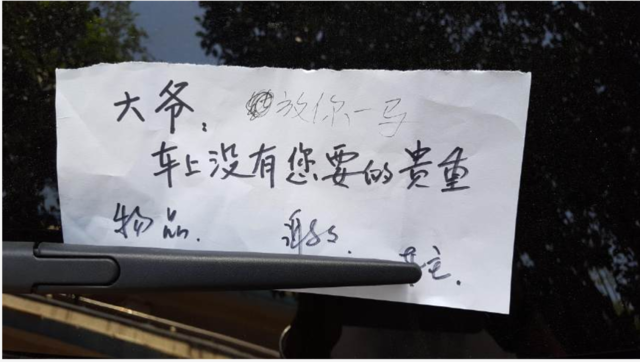 大爷：放你一马
车上没有您要的貴重
物品. 谢谢.